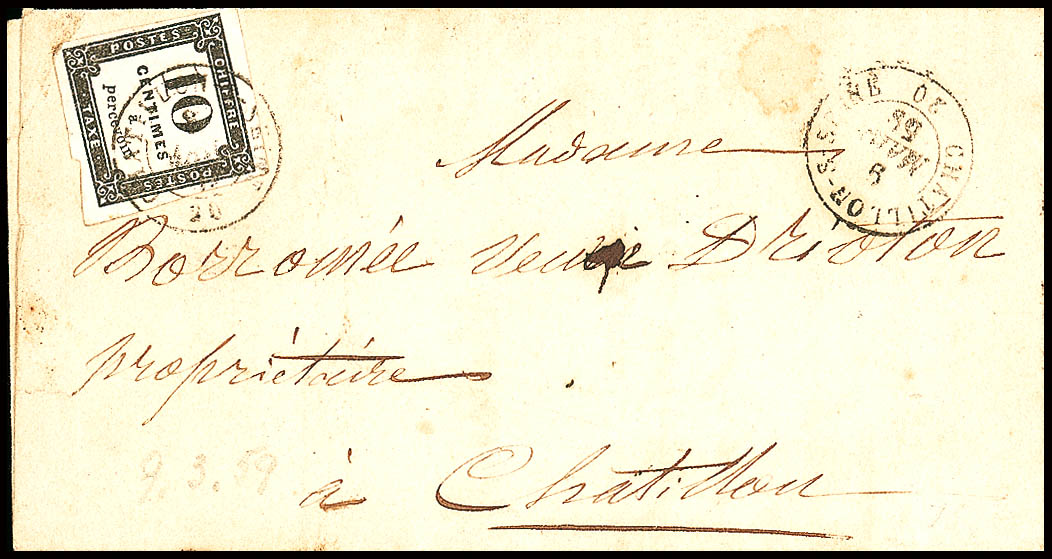 POSTES
CHIFFRE
TAXE
POSTES
10
CENTIMES
à
percevoir
20
CHATILLON-S-SEINE
9
MARS
Madame
Borromée veuve Drioton
propriétaire
à Châtillon
9.3.59